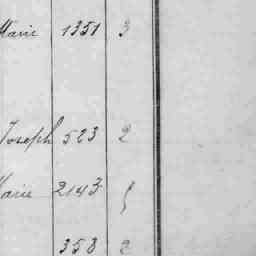 Marie 1351 3
Joseph 523 2
Marie 2143
358 2